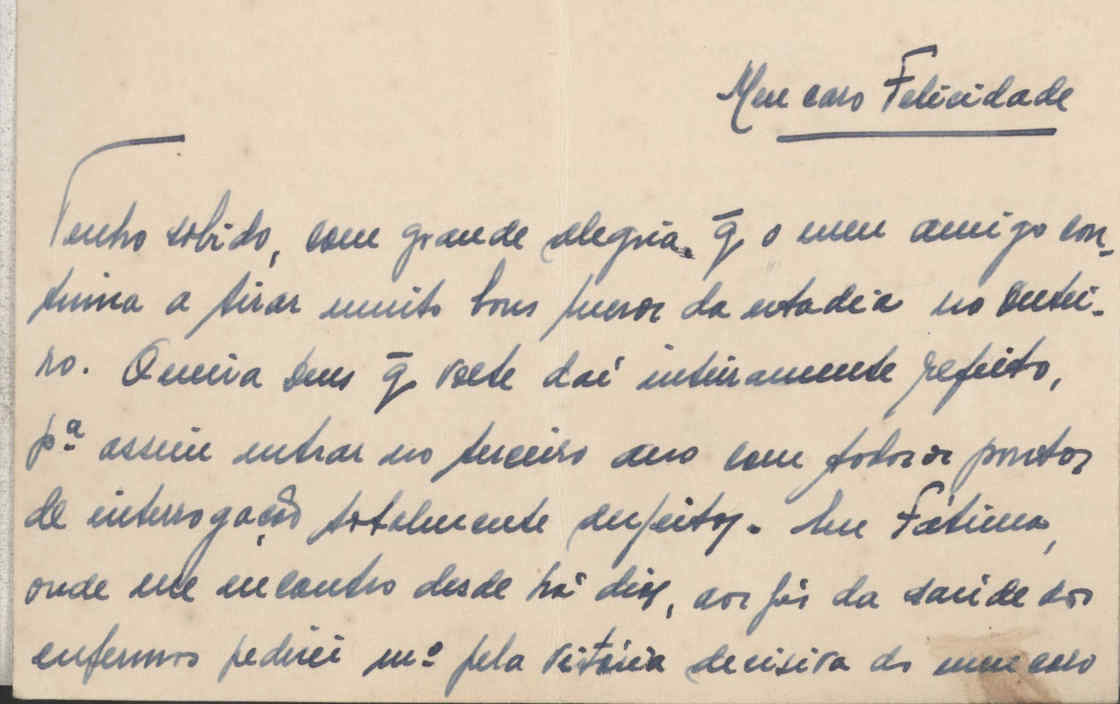 Meu caro Felicidade
Tenho sabido, com grande alegria. q̄ o meu amigo con-
tinua a tirar muito bons da estadia no Outei-
ro. Queira Deus q̄ volte daí inteiramente refeito,
pª assim entrar no terceiro ano com todos os pontos
de interrogação totalmente desfeitos. Em Fátima,
onde me encontro desde há dias, aos pés da saúde dos
enfermos pedirei mº pela vitória decisiva do meu caro